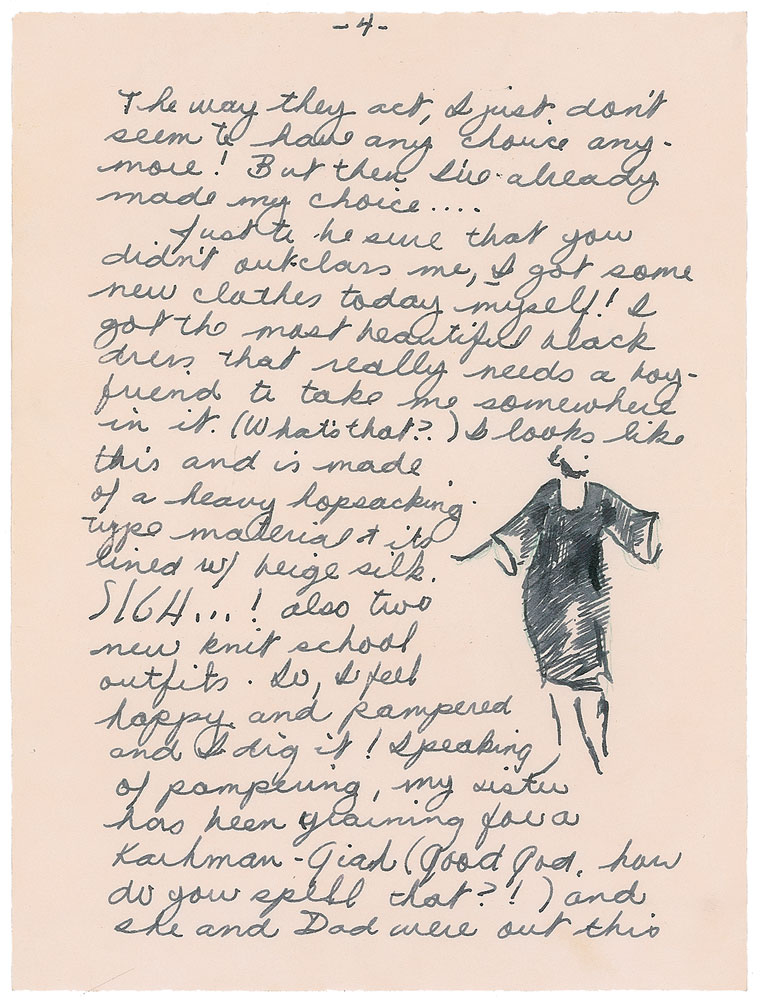 -4-
The way they act, I just don't
seem to have any choice any-
more! But then I've already
made my choice....
Just to be sure that you
didn't outclass me, I got some
new clothes today myself! I
got the most beautiful black
dress that really needs a boy-
friend to take me somewhere
in it. (What's that?.) I looks like
this and is made
of a heavy hopsacking
type material & its
lined w/ beige silk.
SIGH...! also two
new knit school
outfits. So, I feel
happy and pampered
and I dig it! Speaking
of pampering, my sister
has been yearning for a
Karhman-Giah (Good God, how
do you spell that?!) and
she and Dad were out this